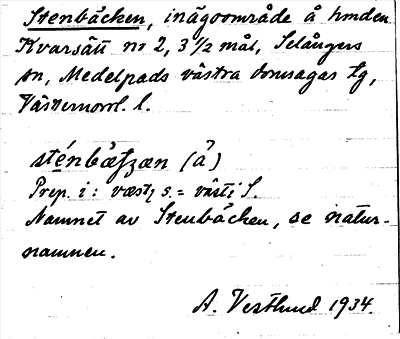 Stenbäcken, inägoområde å hmden
Kvarsätt nr 2, 3 1/2 mål, Selångers
sn, Medelpads västra domsagas tg,
Västernorrl. l.
Prep. i: væstɩ s. = västi S.
Namnet av Stenbäcken, se natur-
namnen.
A. Vestlund 1934.